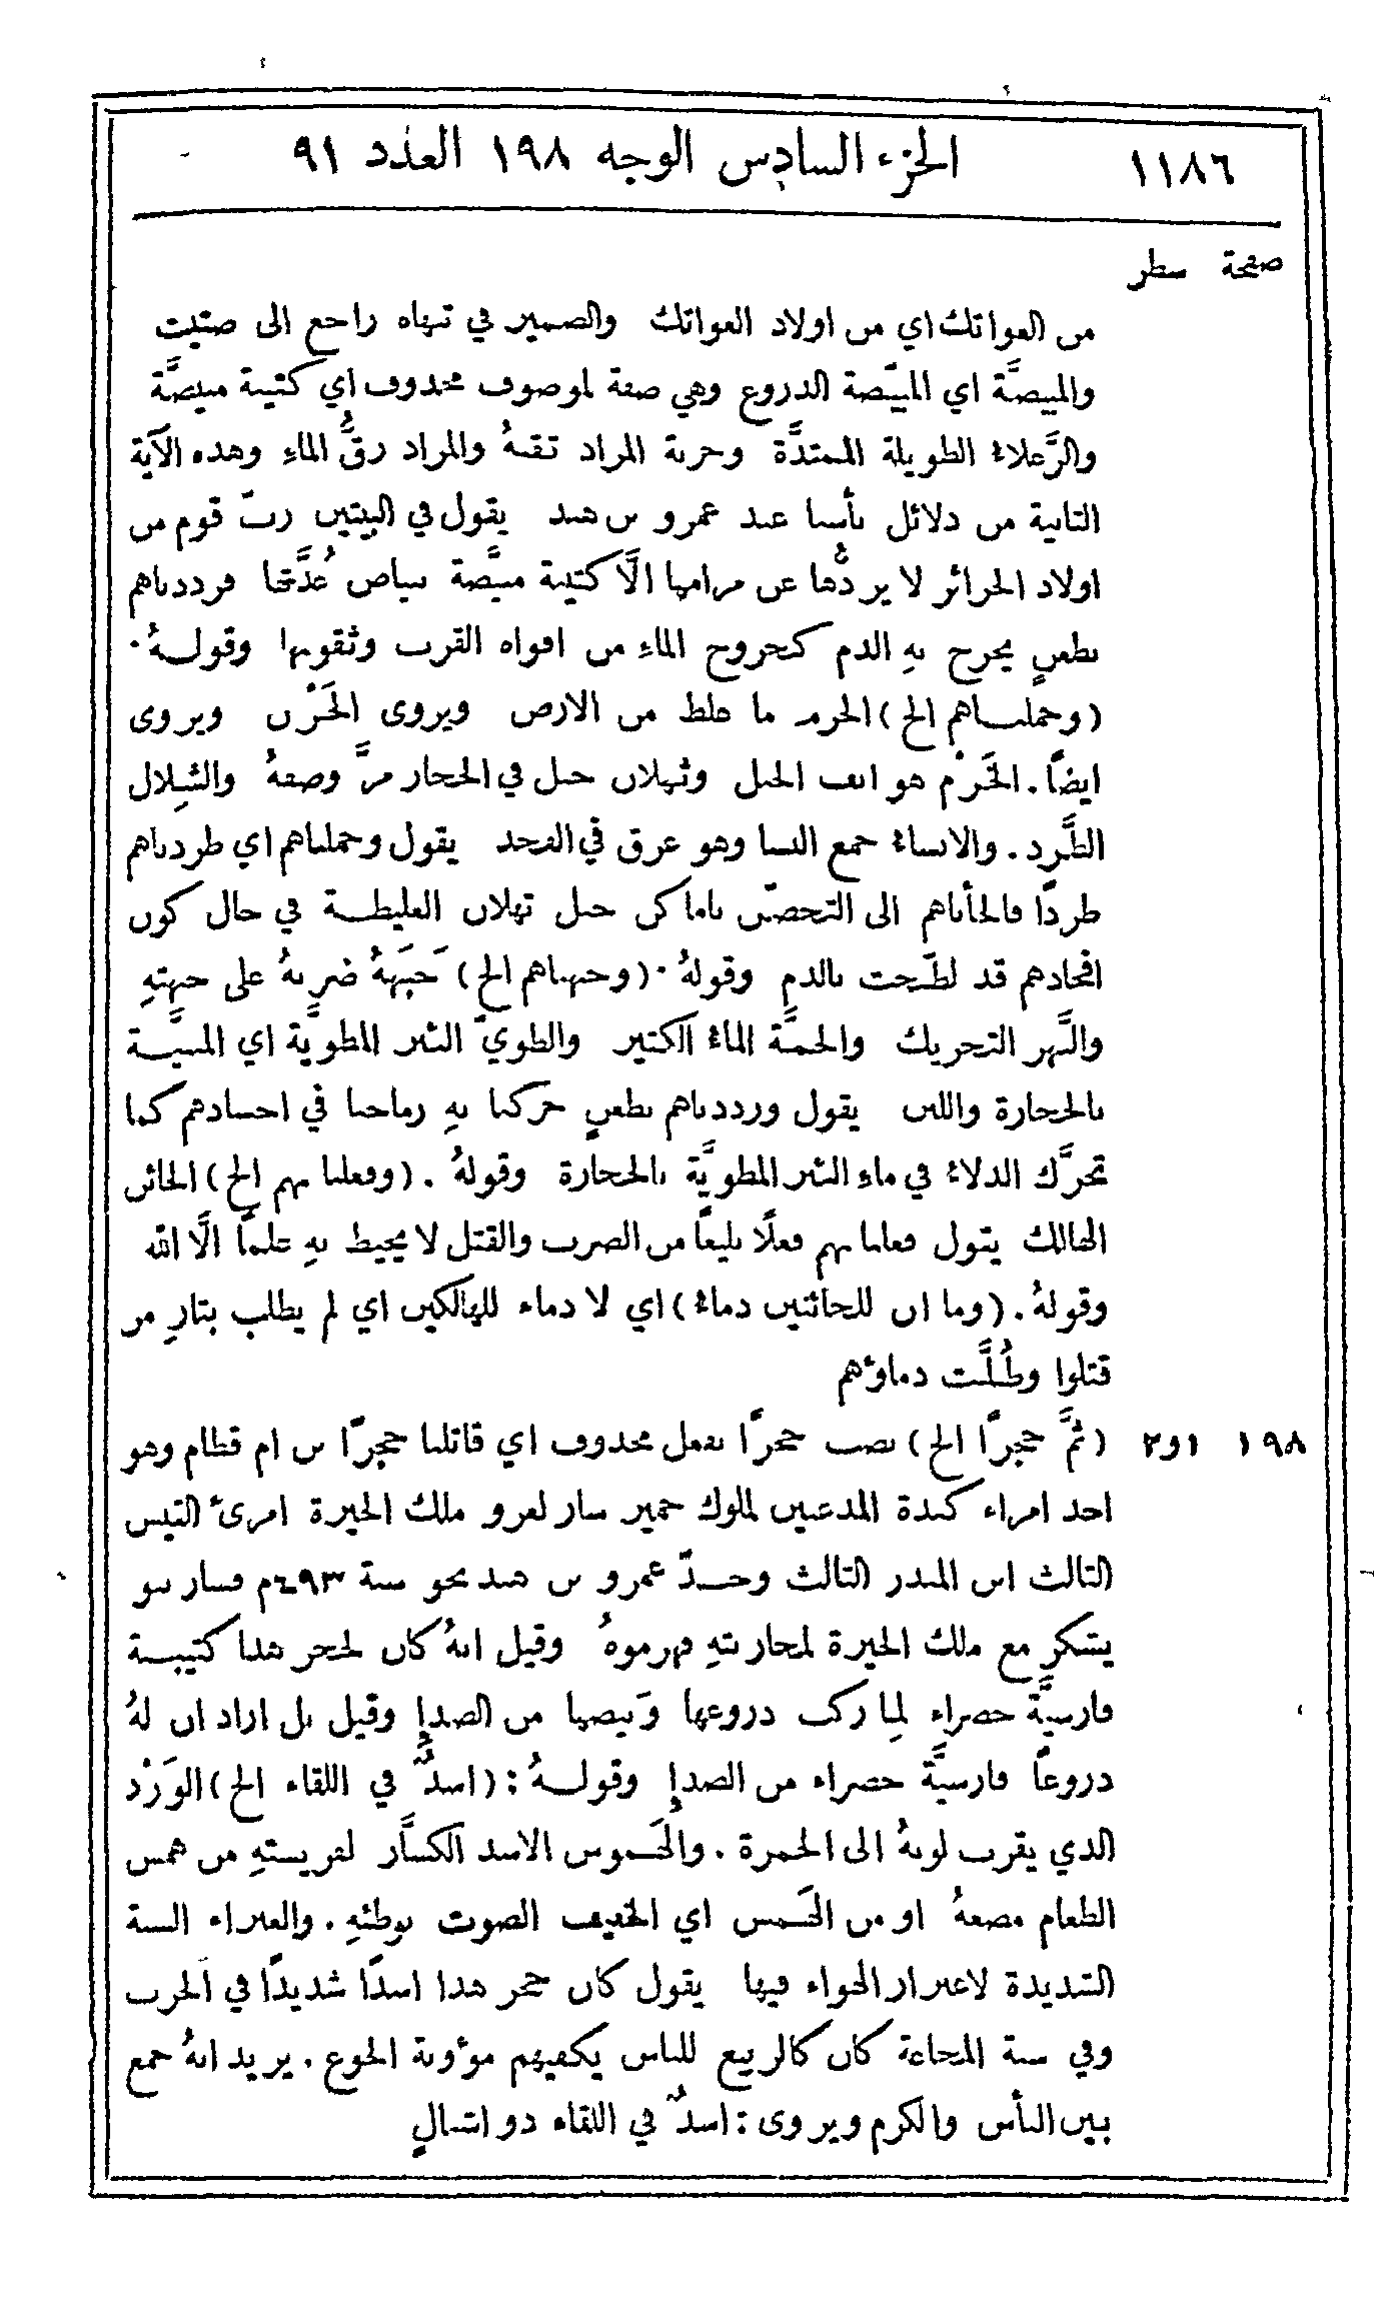 ١١٨٦ الجزء السادس الوجه ١٩٨ العدد ٩١
صفحة سطر
من العواتك اي من اولاد العواتك والضمير في تنهاه راجع الى صتيت
والمبيضَّة اي المبيّضة الدروع وهي صفة لموصوف محذوف اي كتيبة مبيضَّة
والرَّعلاءُ الطويلة الممتدَّة وخربة المزاد ثقبهُ والمراد زقُّ الماءِ وهذه الآية
الثانية من دلائل بأسنا عند عمرو بن هند يقول في البيتين ربّ قوم من
اولاد الحرائر لا يردُّها عن مرامها الَّا كتيبة مبيَّضة ببياض عُدَّتها فرددناهم
بطعنٍ يخرج بهِ الدم كخروج الماءِ من افواه القرب وثقوبها وقولـهُ.
(وحملنـاهم الخ) الحزم ما غلظ من الارض ويروى الحَزْن ويروى
ايضًا. الخَرْم هو انف الجبل وثهلان جبل في الحجاز مرَّ وصفهُ والشِلال
الطَّرد. والانساءُ جمع النسا وهو عرق في الفخذ يقول وحملناهم اي طردناهم
طردًا فالجأناهم الى التحصّن باماكن جبل ثهلان الغليظـة في حال كون
افخاذهم قد لطّخت بالدمِ وقولهُ. (وجبهناهم الخ) جَبَهَهُ ضربهُ على جبهتهِ
والنَّهز التحريك والجمَّة الماءُ الكثير والطويّ البئر المطويَّة اي المبنيَّـة
بالحجارة واللبن يقول ورددناهم بطعنٍ حركنا بهِ رماحنا في اجسادهم كما
تحرَّك الدلاءُ في ماءِ البئر المطويَّة بالحجارة وقولهُ. (وفعلنا بهم الخ) الحائن
الهالك يقول فعلنا بهم فعلًا بليغًا من الضرب والقتل لا يحيط بهِ علمًا الَّا الله
وقولهُ. (وما ان للحائنين دماءُ) اي لا دماء للهالكين اي لم يطلب بثارِ من
قتلوا وطُلَّت دماؤهم
١٩٨ ١و٢ (ثمَّ حجرًا الخ) نصب حجرًا بفعل محذوف اي قاتلنا حجرًا بن ام قطام وهو
احد امراء كندة المدعين لملوك حمير سار لغزو ملك الحيرة امرئ القيس
الثالث ابن المنذر الثالث وجـدّ عمرو بن هند نحو سنة ٤٩٣م فسار بنو
يشكر مع ملك الحيرة لمحاربتهِ فهزموهُ وقيل انهُ كان لحجر هذا كتيبـة
فارسيَّة خضراء لِما ركب دروعها وبَيضها من الصدإِ وقيل بل اراد ان لهُ
دروعًا فارسيَّة خضراء من الصدإِ وقولـهُ: (اسدٌ في اللقاء الخ) الوَرْد
الذي يقرب لونهُ الى الحمرة. والهَموس الاسد الكسَّار لفريستهِ من همس
الطعام مضغهُ او من الهَمس اي الخفيف الصوت بوطئهِ. والغبراء السنة
الشديدة لاغبرار الهواء فيها يقول كان حجر هذا اسدًا شديدًا في الحرب
وفي سنة المجاعة كان كالربيع للناس يكفيهم مؤونة الجوع. يريد انهُ جمع
بين البأس والكرم ويروى: اسدٌ في اللقاء ذو اشبالٍ